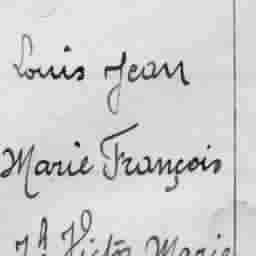 Louis Jean
Marie François
Jh Victor Marie